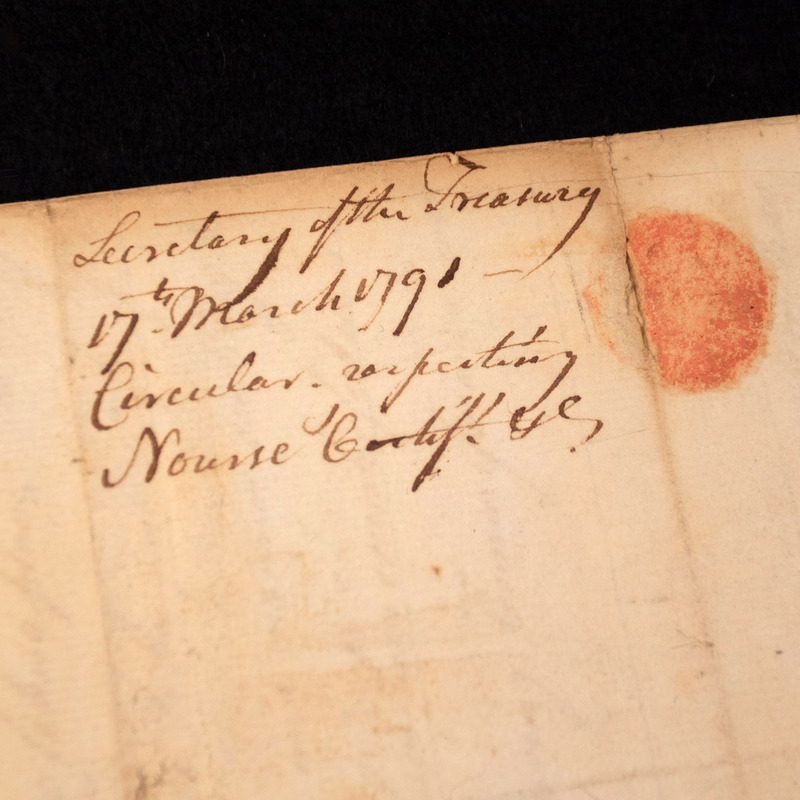 Secretary of the Treasury
17th March 1791 –
Circular. respecting
Nourse's Certift. &c